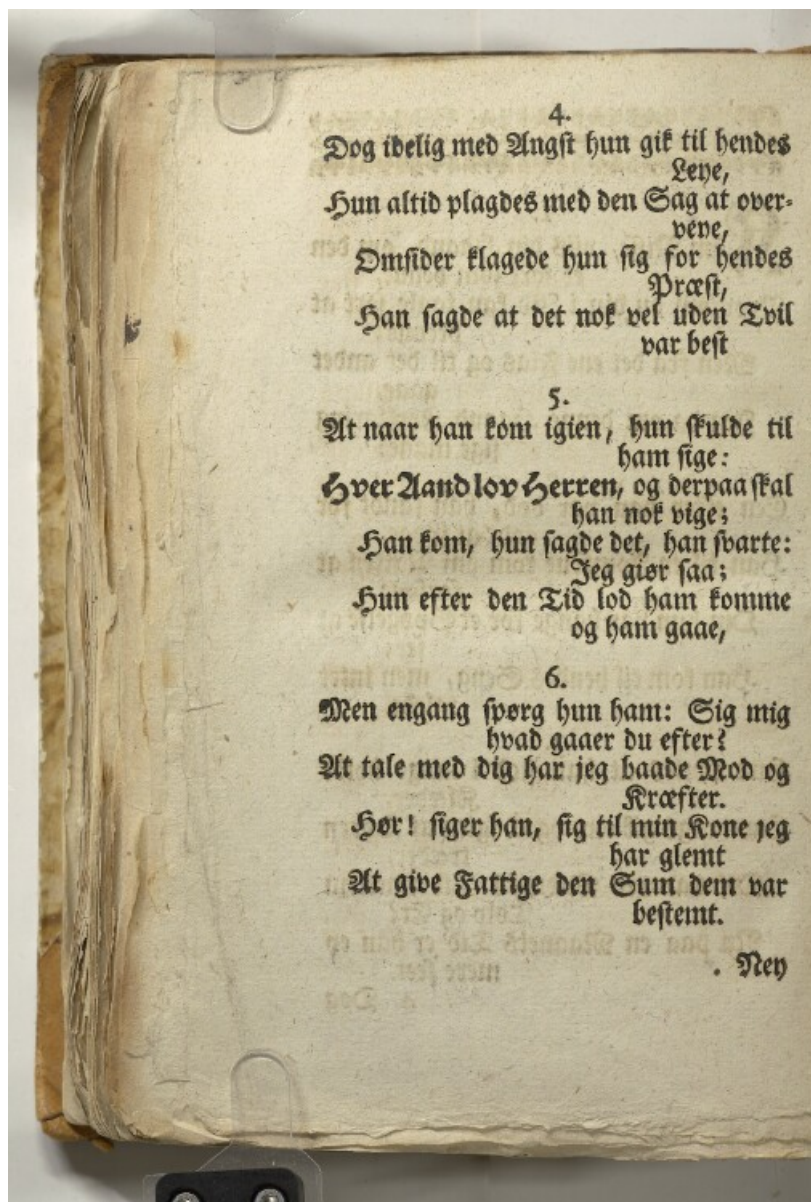 4.
Dog idelig med Angst hun gik til hendes
Leye,
Hun altid plagdes med den Sag at over-
veye,
Omsider klagede hun sig for hendes
Præst,
Han sagde at det nok vel uden Tvil
var best
5.
At naar han kom igien, hun skulde til
ham sige:
Hver Aand lov Herren, og derpaa skal
han nok vige;
Han kom, hun sagde det, han svarte:
Jeg giør saa;
Hun efter den Tid lod ham komme
og ham gaae,
6.
Men engang spørg hun ham: Sig mig
hvad gaaer du efter?
At tale med dig har jeg baade Mod og
Kræfter.
Hør! siger han, sig til min Kone jeg
har glemt
At give Fattige den Sum dem var
bestemt.
. Ney